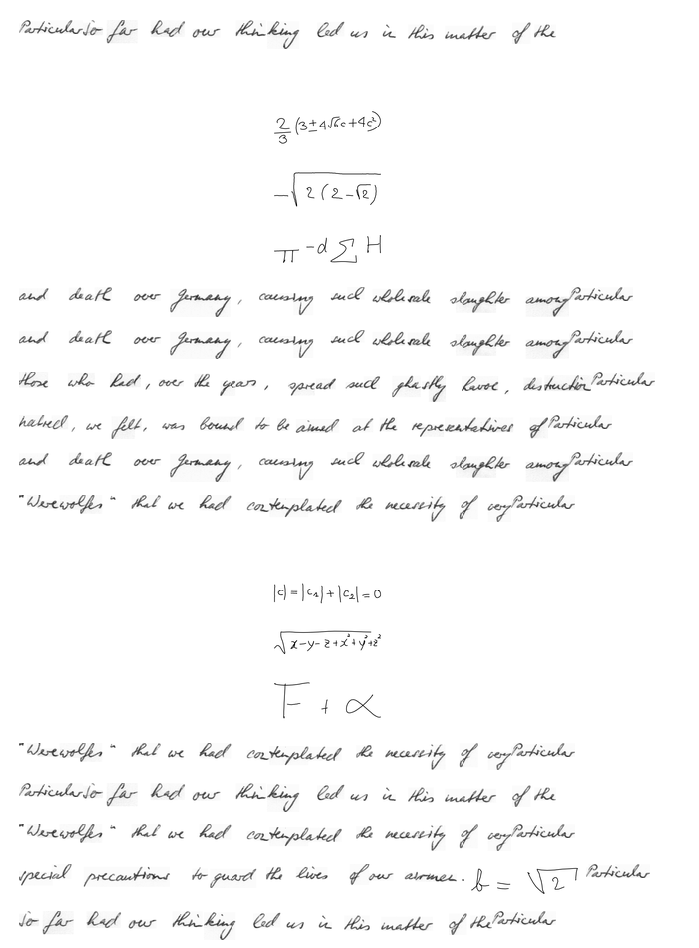 Particular So far had our thinking led us in this matter of the
2/3 (3 ± 4√6c + 4c²)
-√(2(2-√2))
π^-d Σ H
and death over Germany, causing such wholesale slaughter among Particular
and death over Germany, causing such wholesale slaughter among Particular
those who had, over the years, spread such ghastly havoc, destruction Particular
hatred, we felt, was bound to be aimed at the representatives of Particular
and death over Germany, causing such wholesale slaughter among Particular
"Werewolfes" that we had contemplated the necessity of very Particular
|c| = |c₁| + |c₂| = 0
√(x-y-z+x²+y²+z²)
F + α
"Werewolfes" that we had contemplated the necessity of very Particular
Particular So far had our thinking led us in this matter of the
"Werewolfes" that we had contemplated the necessity of very Particular
special precautions to guard the lives of our airmen. b = √2 Particular
So far had our thinking led us in this matter of the Particular